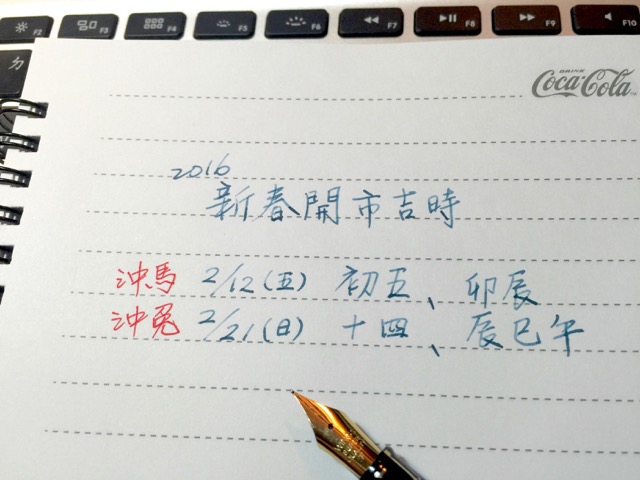 F2 F3 F4 F5 F6 F7 F8 F9 F10
ㄅ
DRINK
Coca-Cola
2016
新春開市吉時
沖馬 2/12(五) 初五、卯辰
沖兔 2/21(日) 十四、辰巳午